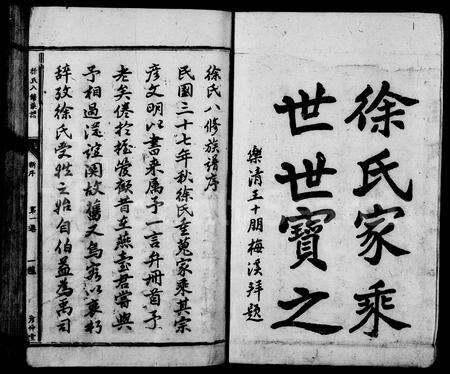 徐氏家乘
世世寶之
樂清王十朋梅溪拜題
徐氏八修族譜序
民國三十七年秋徐氏重蒐家乘其宗
彥文明以書來属予一言弁冊首予
老矣倦於握管顧昔在燕臺君嘗與
予相過從誼關故舊又烏容以衰朽
辞攷徐氏受姓之始自伯益為禹司
徐氏八修族譜
新序
第一卷
一